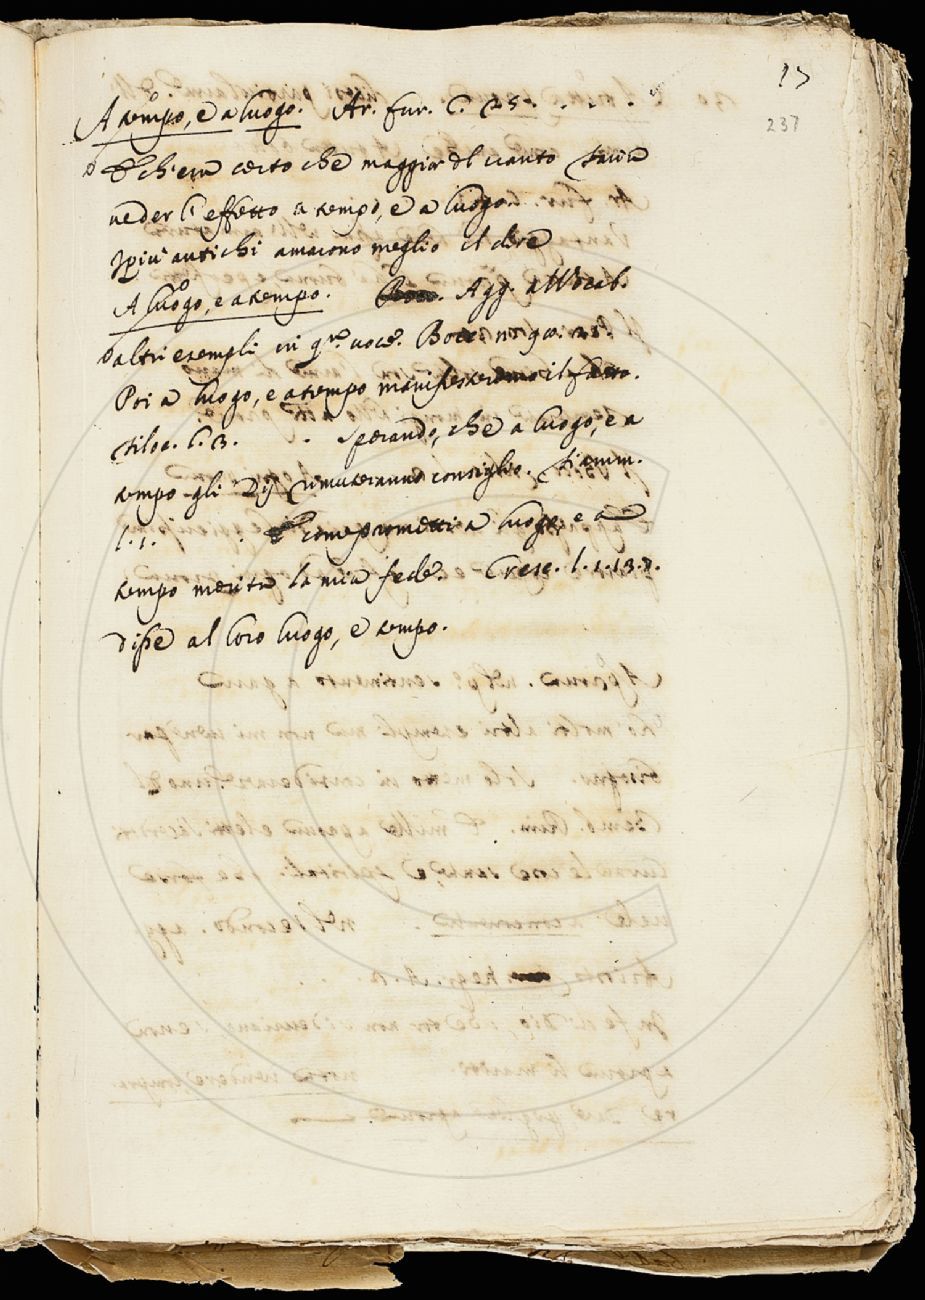 13
237
A tempo, e a luogo. Ar. fur. C. 25. . .
E ch'era certo che maggior del vanto
veder l'effetto a tempo, e a luogo.
I più antichi amarono meglio il dire
A luogo, e a tempo. Agg. al Vocab.
altri esempli in q.ta voce. Bocc. no. 98. 28.
Poi a luogo, e a tempo manifesteremo il fatto.
Filoc. l. 3. . sperando, che a luogo, e a
tempo gli Dij rimuteranno consiglio. Fiamm.
l. 1. . E come prometti a luogo, e a
tempo merita la mia fede. Cresc. l. 1. 13. 7.
disse al loro luogo, e tempo.